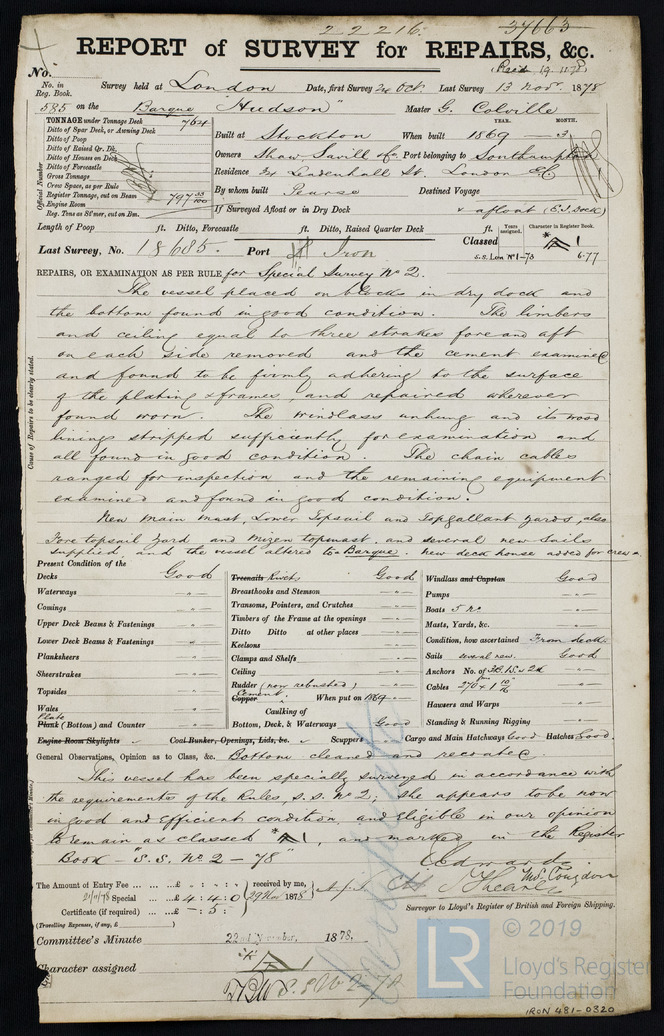 22216.
37663
REPORT of SURVEY for REPAIRS, &c.
No.
(Recd 19.11.78)
No. in Reg. Book. Survey held at London Date, first Survey 24 Oct. Last Survey 13 Novr. 1878
585 on the Barque "Hudson" Master G. Colville
TONNAGE under Tonnage Deck 764
Ditto of Spar Deck, or Awning Deck
Ditto of Poop
Ditto of Raised Qr. Dk.
Ditto of Houses on Deck
Ditto of Forecastle
Gross Tonnage
Crew Space, as per Rule
Register Tonnage, out on Beam 797 33/100
Engine Room
Reg. Tons as St'mer, out on Bm.
Official Number
YEAR. MONTH.
Built at Stockton When built 1869 - 3
Owners Shaw, Savill & Co. Port belonging to Southampton
Residence 34 Leadenhall St. London E.C.
By whom built Pearse Destined Voyage
If Surveyed Afloat or in Dry Dock & afloat (E.I. Dock)
Length of Poop ft. Ditto, Forecastle ft. Ditto, Raised Quarter Deck ft.
Years assigned. Character in Register Book.
Last Survey, No. 18685. Port Iron Classed A 1
S.S. Lon No 1-73 6.77
REPAIRS, OR EXAMINATION AS PER RULE for Special Survey No 2.
Cause of Repairs to be clearly stated.
The vessel placed on blocks in dry dock and
the bottom found in good condition. The limbers
and ceiling equal to three strakes fore and aft
on each side removed and the cement examined
and found to be firmly adhering to the surface
of the plating & frames, and repaired wherever
found worn. The windlass unhung and its wood
linings stripped sufficiently for examination and
all found in good condition. The chain cables
ranged for inspection and the remaining equipment
examined and found in good condition.
New main mast, Lower Topsail and Topgallant yards, also
Fore topsail yard and Mizen topmast, and several new Sails
supplied, and the vessel altered to a Barque. New deck house added for crew.
Present Condition of the
Decks Good
Waterways - " -
Comings - " -
Upper Deck Beams & Fastenings - " -
Lower Deck Beams & Fastenings - " -
Planksheers - " -
Sheerstrakes - " -
Topsides - " -
Wales - " -
Plate
Plank (Bottom) and Counter - " -
Treenails Rivets Good
Breasthooks and Stemson - " -
Transoms, Pointers, and Crutches - " -
Timbers of the Frame at the openings - " -
Ditto Ditto at other places - " -
Keelsons - " -
Clamps and Shelfs - " -
Ceiling - " -
Rudder (now rebushed) - " -
Cement.
Copper When put on 1869
Caulking of
Bottom, Deck, & Waterways Good
Windlass and Capstan Good
Pumps - " -
Boats 5 No - " -
Masts, Yards, &c. - " -
Condition, how ascertained From deck.
Sails several new. Good
Anchors No. of 3B. 1S. & 2K - " -
Cables 270 fms 1 10/16 - " -
Hawsers and Warps - " -
Standing & Running Rigging - " -
Engine Room Skylights Coal Bunker, Openings, Lids, &c. Scuppers Cargo and Main Hatchways Good Hatches Good
General Observations, Opinion as to Class, &c. Bottom cleaned and recoated.
This vessel has been specially surveyed in accordance with
the requirements of the Rules, S.S. No 2; she appears to be now
in good and efficient condition and eligible in our opinion
to remain as classed A 1, and marked in the Register
Book - "S.S. No 2 - 78"
The Amount of Entry Fee ... £ : :
21/11/78 Special ... £ 4 : 4 : 0
Certificate (if required) ... £ - : 5 : -
(Travelling Expenses, if any, £ )
received by me,
29 Nov 1878
Thos. Congdon
Surveyor to Lloyd's Register of British and Foreign Shipping.
Committee's Minute 22nd November, 1878.
Character assigned A 1
S.S. No 2-78
LR
© 2019
Lloyd's Register
Foundation
IRON 481-0320